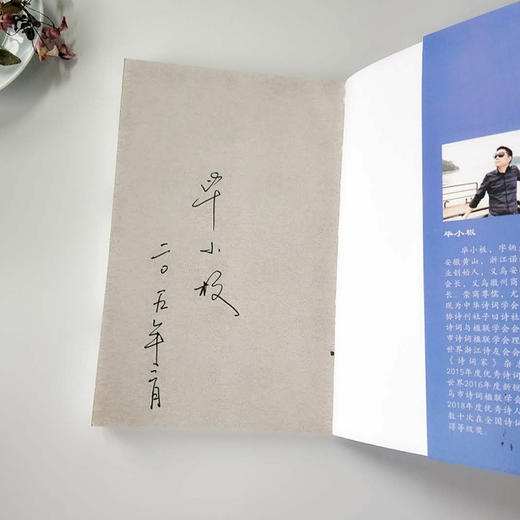 毕小板
二〇五年二月
毕小板
毕小板，字炳
安徽黄山，浙江诺
业创始人，义乌安
会长，义乌徽州商
长。崇商尊儒，尤
现为中华诗词学会
协诗刊社子曰诗社
诗词与楹联学会
市诗词楹联学会理
世界浙江诗友会会
《诗词家》杂
2015年度优秀诗词
世界2016年度新锐
乌市诗词楹联学会
2018年度优秀诗人
数十次在全国诗词
得等级奖。